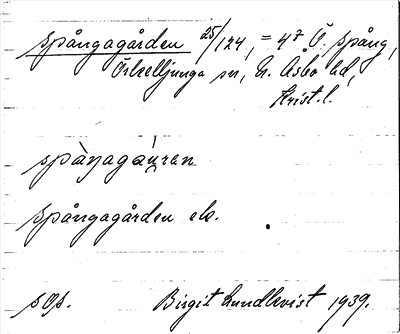 Spångagården 25/124, = 4⁷ Ö. Spång,
Örkelljunga sn, N. Åsbo hd,
Krist. l.
spàŋagáụran
Spångagården els.
sOp. Birgit Lundkvist 1939.